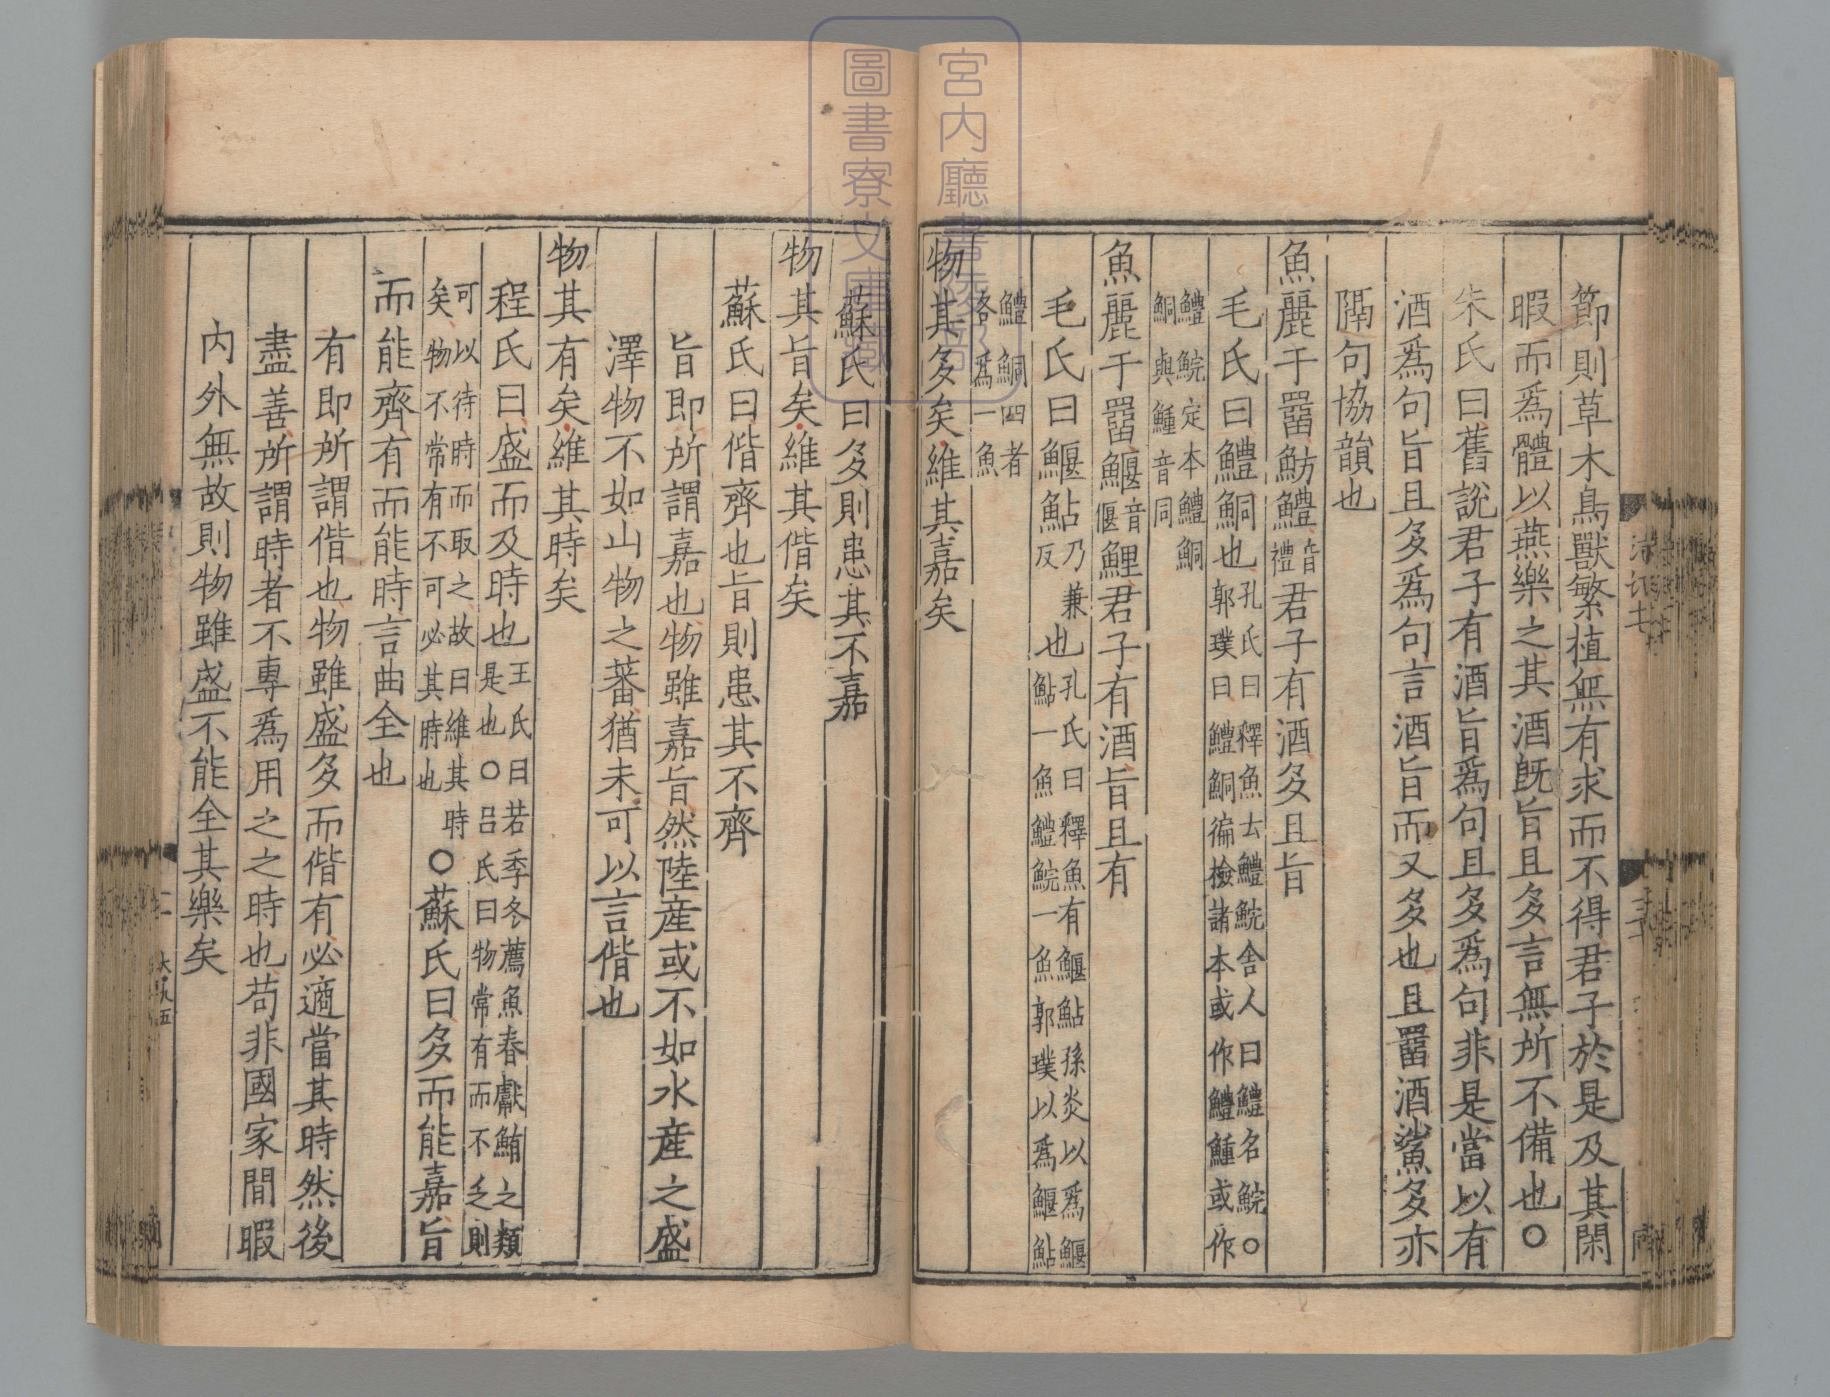 節則草木鳥獸繁植無有求而不得君子於是及其閑
暇而爲體以燕樂之其酒既旨且多言無所不備也○
朱氏曰舊說君子有酒旨爲句且多爲句非是當以有
酒爲句旨且多爲句言酒旨而又多也且罶酒鯊多亦
隔句協韻也
魚麗于罶魴鱧音禮君子有酒多且旨
毛氏曰鱧鮦也孔氏曰釋魚云鱧鯇舍人曰鱧名鯇○
郭璞曰鱧鮦徧檢諸本或作鱧鯶或作
鱧鯇定本鱧鮦
鮦與鯶音同
魚麗于罶鰋音偃鯉君子有酒旨且有
毛氏曰鰋鮎乃兼反也孔氏曰釋魚有鰋鮎孫炎以爲鰋
鮎一魚鱧鯇一魚郭璞以爲鰋鮎
鱧鮦四者
各爲一魚
物其多矣維其嘉矣
蘇氏曰多則患其不嘉
物其旨矣維其偕矣
蘇氏曰偕齊也旨則患其不齊
旨即所謂嘉也物雖嘉旨然陸產或不如水產之盛
澤物不如山物之蕃猶未可以言偕也
物其有矣維其時矣
程氏曰盛而及時也王氏曰若季冬薦魚春獻鮪之類
是也○呂氏曰物常有而不乏則
可以待時而取之故曰維其時
矣物不常有不可必其時也○蘇氏曰多而能嘉旨
而能齊有而能時言曲全也
有即所謂偕也物雖盛多而偕有必適當其時然後
盡善所謂時者不專爲用之之時也苟非國家閒暇
內外無故則物雖盛不能全其樂矣
宮內廳書陵部
圖書寮文庫藏